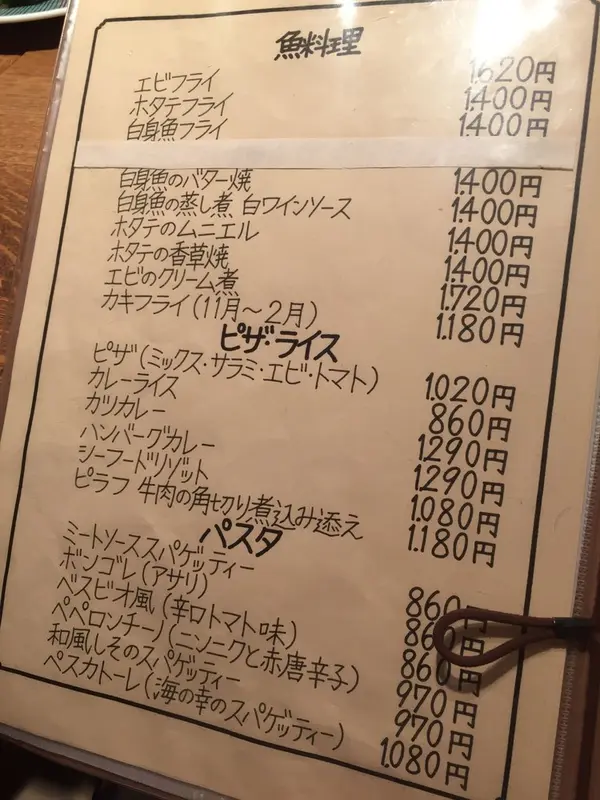 魚料理
エビフライ 1.620円
ホタテフライ 1.400円
白身魚フライ 1.400円
白身魚のバター焼 1.400円
白身魚の蒸し煮 白ワインソース 1.400円
ホタテのムニエル 1.400円
ホタテの香草焼 1.400円
エビのクリーム煮 1.720円
カキフライ(11月〜2月) 1.180円
ピザ・ライス
ピザ(ミックス・サラミ・エビ・トマト) 1.020円
カレーライス 860円
カツカレー 1.290円
ハンバーグカレー 1.290円
シーフードリゾット 1.080円
ピラフ 牛肉の角切り煮込み添え 1.180円
パスタ
ミートソーススパゲッティー 860円
ボンゴレ(アサリ) 860円
ベスビオ風(辛口トマト味) 860円
ペペロンチーノ(ニンニクと赤唐辛子) 970円
和風しそのスパゲッティー 970円
ペスカトーレ(海の幸のスパゲッティー) 1.080円